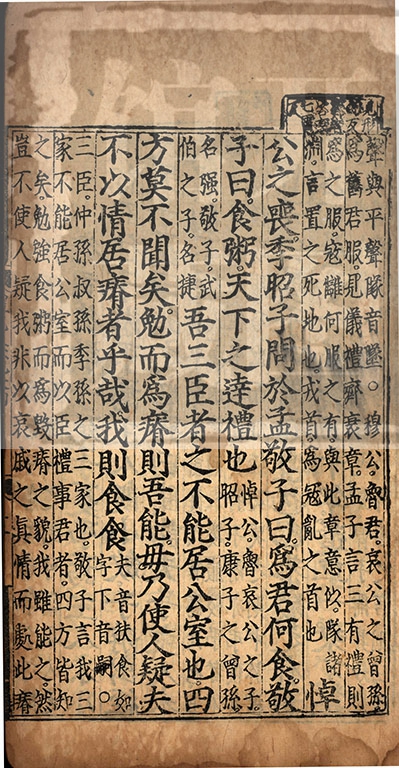 聲與平聲隊音墜○穆公魯君哀公之曾孫
爲舊君服見儀禮齊衰章孟子言三有禮則
爲之服寇讎何服之有與此章意似隊諸
淵言置之死地也戎首爲寇亂之首也
悼
公之喪季昭子問於孟敬子曰爲君何食敬
子曰食粥天下之達禮也
悼公魯哀公之子
昭子康子之曾孫
名强敬子武
伯之子名捷
吾三臣者之不能居公室也四
方莫不聞矣勉而爲瘠則吾能毋乃使人疑夫
不以情居瘠者乎哉我則食食
夫音扶食如
字下音嗣○
三臣仲孫叔孫季孫之三家也敬子言我三
家不能居公室而以臣禮事君者四方皆知
之矣勉強食粥而爲毀瘠之貌我雖能之然
豈不使人疑我非以哀戚之眞情而處此瘠